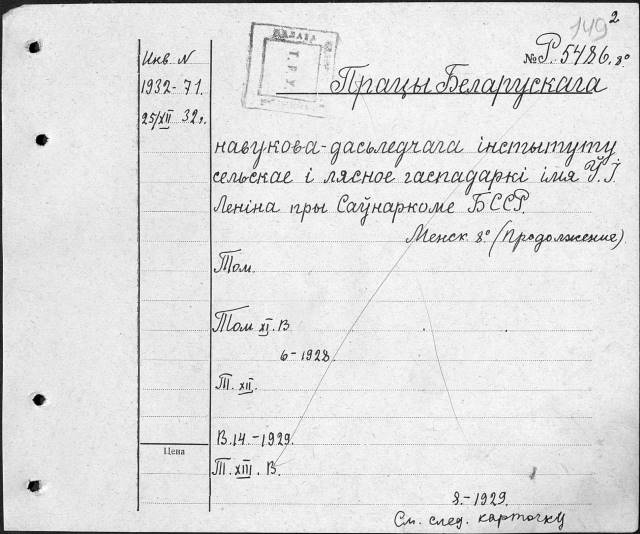 149 2
Инв. N
1932-71.
25/XII 32г.
ПАЛАТА
Т. Р. У.
№ Р. 5486. 8°
Працы Беларускага
навукова-дасьледчага інстытуту
сельскае і лясное гаспадаркі імя Ў. І.
Леніна пры Саўнаркоме БССР.
Менск 8° (Продолжение)
Том.
Том XI. В
6-1928.
Т. XII.
В. 14.-1929.
Цена
Т. XIII. В.
8-1929.
См. след. карточку